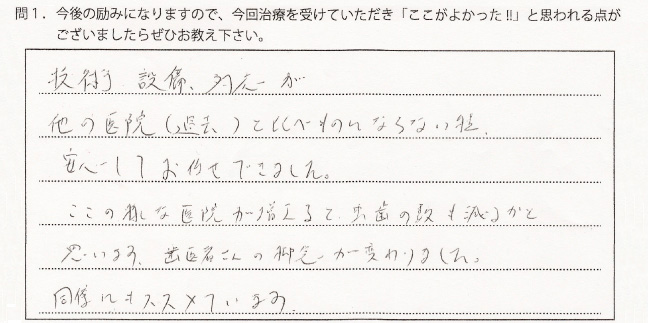 問1．今後の励みになりますので、今回治療を受けていただき「ここがよかった!!」と思われる点が
ございましたらぜひお教え下さい。
技術、設備、対応が
他の医院（過去）と比べものにならない程、
安心してお任せできました。
ここの様な医院が増えると、虫歯の数も減るかと
思います。歯医者さんの概念が変わりました。
同僚にもススメています。